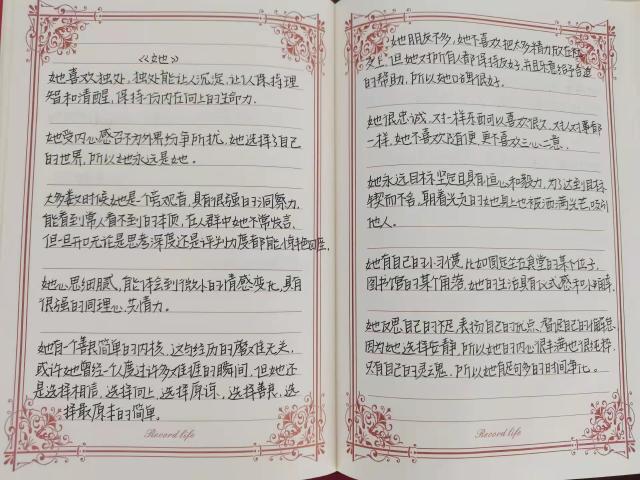 《她》
她喜欢独处，独处能让人沉淀，让人保持理
智和清醒，保持份内在向上的生命力。
她受内心感召不为外界纷争所扰，她选择了自己
的世界，所以她永远是她。
大多数时候她是个旁观者，具有很强的洞察力，
能看到常人看不到的本质，在人群中她不常发言，
但一旦开口无论是思考深度还是评判力度都能
她心思细腻，能体会到微小的情感变化，具有
很强的同理心，共情力。
她有一个善良简单的内核，这与经历的磨难无关，
或许她曾经一个人度过许多难捱的瞬间，但她还
是选择相信，选择向上，选择原谅，选择善良，选
择最原本的简单。
Record life
她朋友不多，她不喜欢把太多精力放在社
交上，但她对所有人都保持友好，并且乐意给予合适
的帮助，所以她口碑很好。
她很忠诚，对一样东西可以喜欢很久，对人对事都
一样，她不喜欢随便，更不喜欢三心二意。
她永远目标坚定且具有恒心和毅力，为了达到目标
锲而不舍，朝着光走的她身上也被洒满光芒，吸引
他人。
她有自己的小习惯，比如固定坐在食堂的某个位子，
图书馆的某个角落，她的生活具有仪式感和小确幸。
她反思自己的不足，表扬自己的优点，督促自己的懈怠，
因为她选择安静，所以她的内心很丰满也很纯粹，
只有自己的灵魂，所以她有足够多的时间净化。
Record life